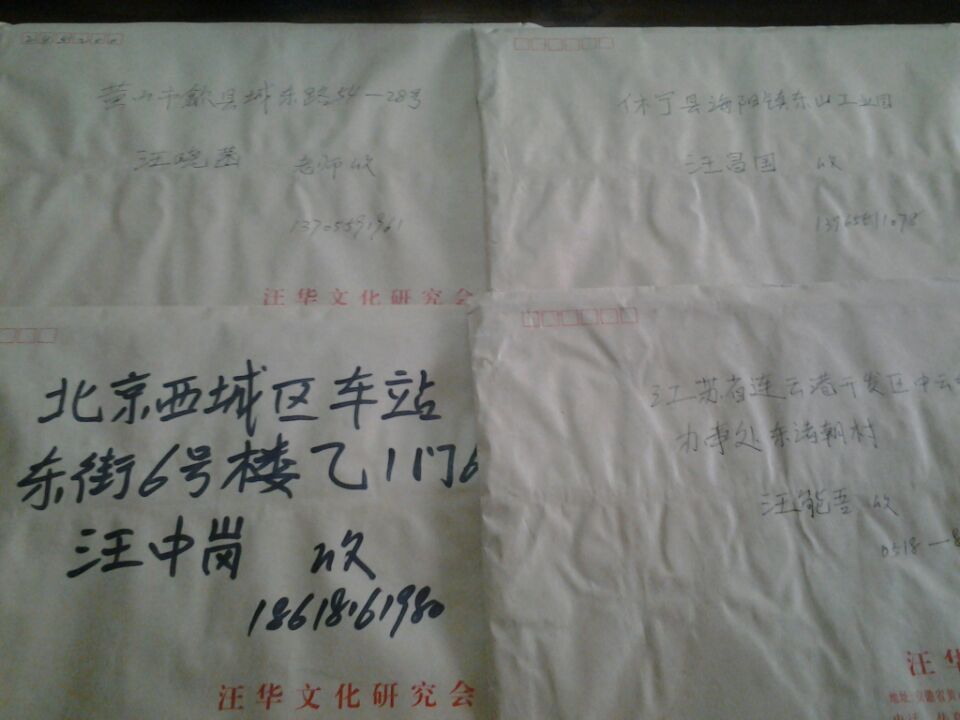 245200
黄山市歙县城东路54-28号
汪晓菡 老师收
13705591961
汪华文化研究会
休宁县海阳镇东山工业园
汪昌国 收
北京西城区车站
东街6号楼乙1门6
汪中岗 收
18618161980
汪华文化研究会
江苏省连云港开发区中云
办事处东诸朝村
汪能吾 收
0518-8
汪华